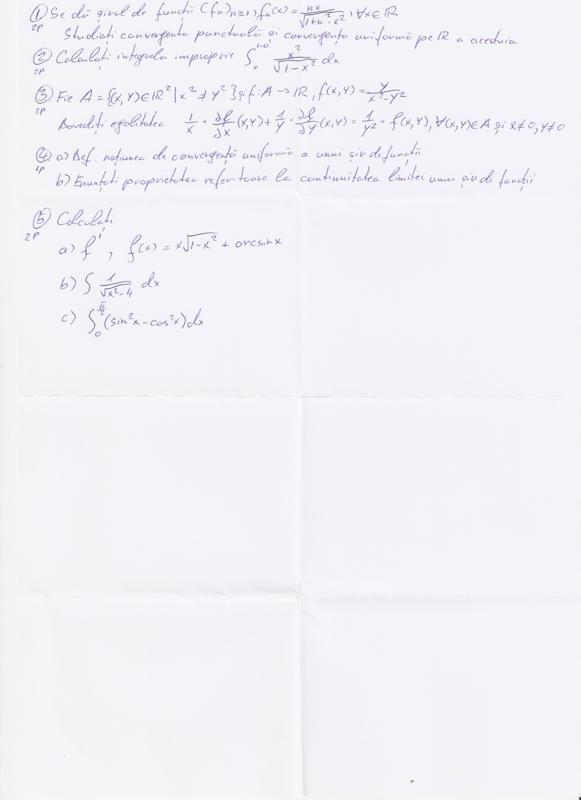 ① Se dă șirul de funcții (fn)n≥1, fn(x) = nx/√(1+n²x²), ∀x∈ℝ
2p Studiați convergența punctuală și convergența uniformă pe ℝ a acestuia
② Calculați integrala improprie ∫₀^(1-0) x²/√(1-x²) dx
2p
③ Fie A = {(x,y)∈ℝ² | x² ≠ y²} și f: A → ℝ, f(x,y) = y/(x²-y²)
2p Dovediți egalitatea 1/x · ∂f/∂x (x,y) + 1/y · ∂f/∂y (x,y) = 1/y² · f(x,y), ∀(x,y)∈A și x≠0, y≠0
④ a) Def. noțiunea de convergență uniformă a unui șir de funcții
1p
b) Enunțați proprietatea referitoare la continuitatea limitei unui șir de funcții
⑤ Calculați
2p
a) f', f(x) = x√(1-x²) + arcsin x
b) ∫ 1/√(x²-4) dx
c) ∫₀^(π/2) (sin²x - cos²x) dx